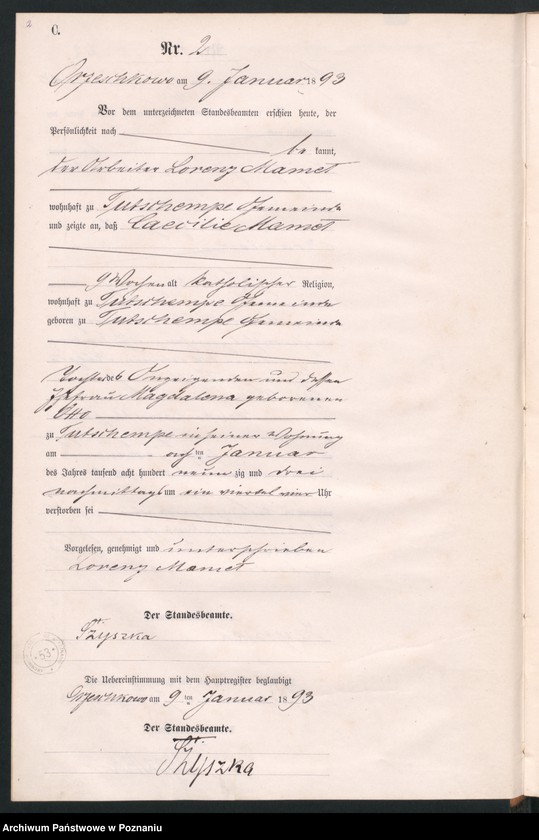 2
C.
Nr. 2
Orzeschkowo am 9. Januar 1893
Vor dem unterzeichneten Standesbeamten erschien heute, der
Persönlichkeit nach
be kannt,
der Arbeiter Lorenz Mamet
wohnhaft zu Tutschempe Gemeinde
und zeigte an, daß Caecilie Mamet
9 Wochen alt katholischer Religion,
wohnhaft zu Tutschempe Gemeinde
geboren zu Tutschempe Gemeinde
Tochter des Anzeigenden und dessen
Ehefrau Magdalena geborenen
Otto
zu Tutschempe in seiner Wohnung
am acht ten Januar
des Jahres tausend acht hundert neun zig und drei
nachmittags um ein viertel vier Uhr
verstorben sei
Vorgelesen, genehmigt und unterschrieben
Lorenz Mamet
Der Standesbeamte.
Szyszka
53
Die Uebereinstimmung mit dem Hauptregister beglaubigt
Orzeschkowo am 9 ten Januar 1893
Der Standesbeamte.
Szyszka
Archiwum Państwowe w Poznaniu